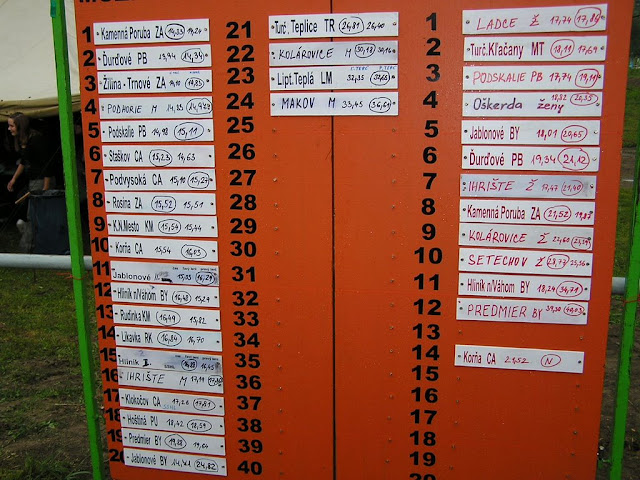 1 Kamenná Poruba ZA 14,23 14,24
2 Ďurďové PB 13,94 14,34
3 Žilina - Trnové ZA
4 PODHORIE M 14,25 14,94
5 Podskalie PB 14,98 15,11
6 Staškov CA 15,23 14,63
7 Podvysoká CA 15,10 15,27
8 Rosina ZA 15,52 15,51
9 K.N.Mesto KM 15,54 15,44
10 Korňa CA 15,54 16,03
11 Jablonové
12 Hliník n/Váhom BY 16,48 15,21
13 Rudinka KM 16,49 15,82
14 Likavka RK 16,84 16,70
15 Hliník I.
16 IHRIŠTE M 17,11
17 Klokočov CA 17,26 17,81
18 Hoštiná PU 18,42 18,59
19 Predmier BY 19,28 19,64
20 Jablonové BY 24,82
21 Turč. Teplice TR 26,81 26,40
22 KOLÁROVICE M 30,13
23 Lipt.Teplá LM 32,35
24 MAKOV M 33,45 36,61
25
26
27
28
29
30
31
32
33
34
35
36
37
38
39
40
1 LADCE Ž 17,74 17,86
2 Turč.Kľačany MT 18,11 17,69
3 PODSKALIE PB 17,74 19,19
4 Oškerda ženy 18,82 20,35
5 Jablonové BY 18,01 20,65
6 Ďurďové PB 19,34 21,12
7 IHRIŠTE Ž 17,47 21,40
8 Kamenná Poruba ZA 21,52 19,87
9 KOLÁROVICE Ž 22,60
10 SETECHOV Ž 25,73 25,36
11 Hliník n/Váhom BY 18,24 34,71
12 PREDMIER BY 39,30 40,03
13
14 Korňa CA 21,52 N
15
16
17
18
19
20